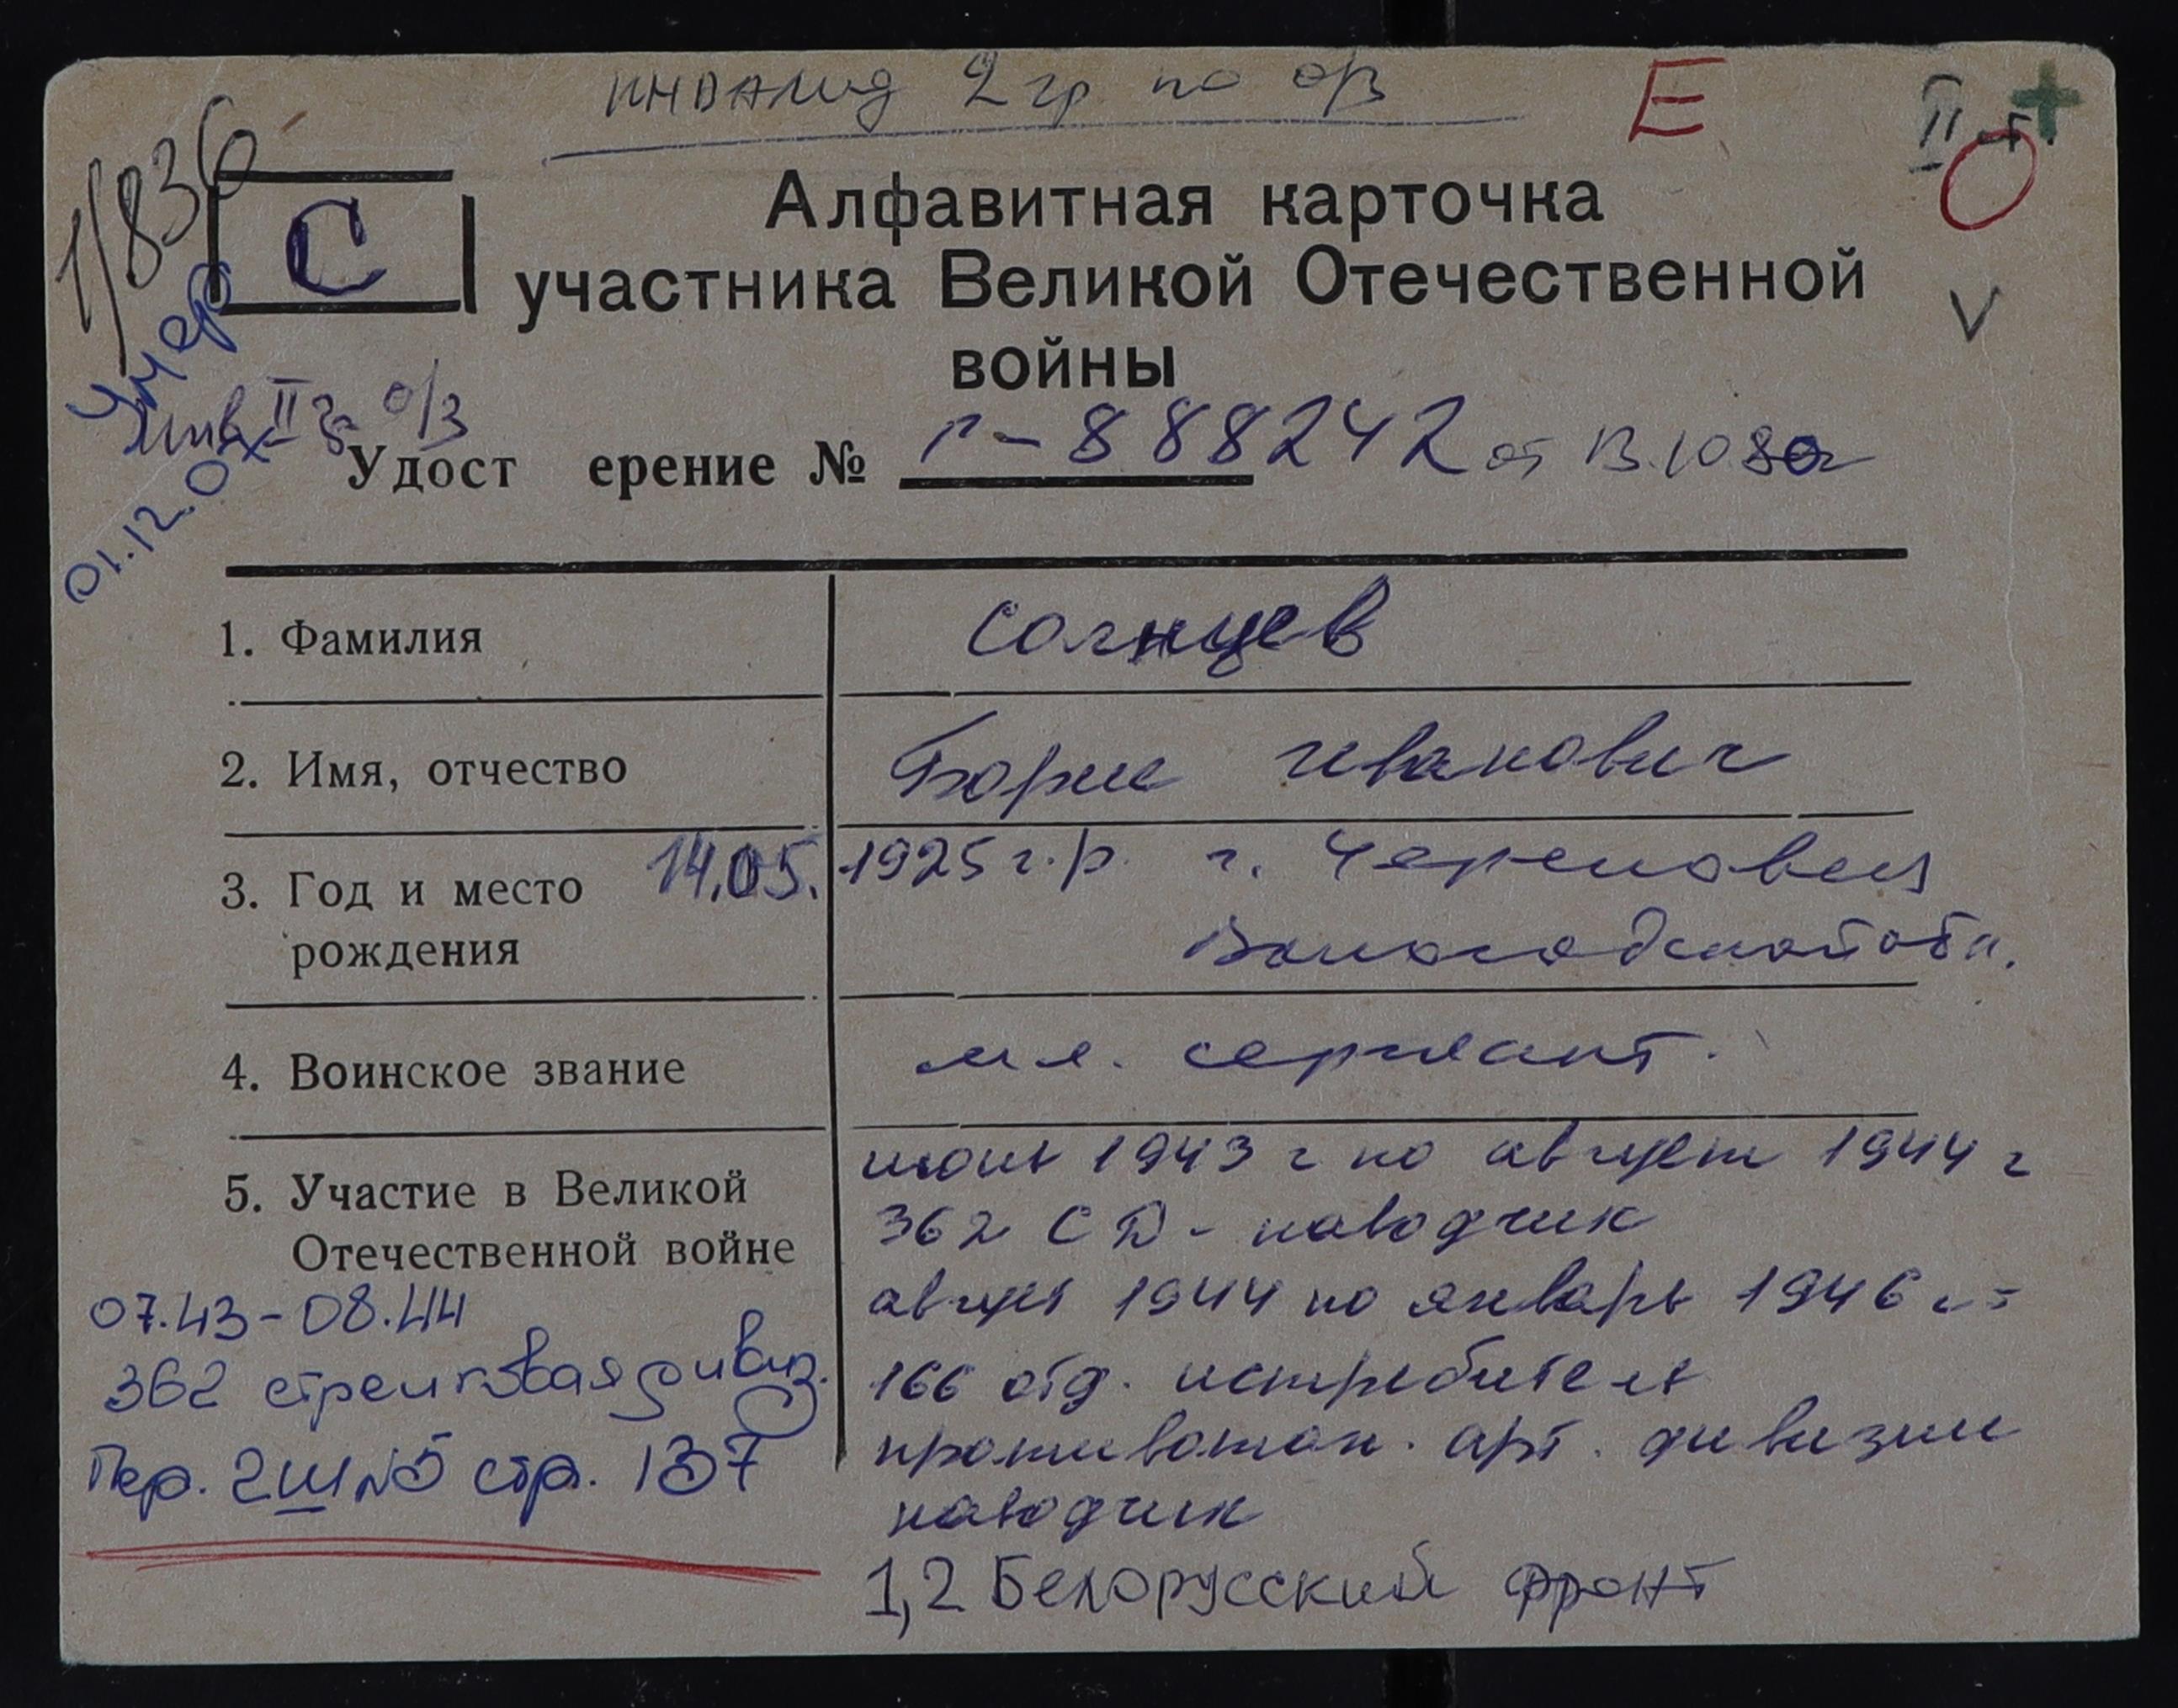 инвалид 2 гр по о/з
Е
II
1/836
С
Алфавитная карточка
участника Великой Отечественной
войны
Умер
01.12.07
инв II гр о/з
Удост ерение № Г-888242 от 13.10 80г
1. Фамилия Солнцев
2. Имя, отчество Борис Иванович
3. Год и место 14.05. 1925 г.р. г. Череповец
рождения Вологодской обл.
4. Воинское звание мл. сержант.
5. Участие в Великой
Отечественной войне
июнь 1943 г по август 1944 г
362 СД - наводчик
август 1944 по январь 1946 г-
166 отд. истребитель
противотан. арт. дивизии
наводчик
1,2 Белорусский фронт
07.43-08.44
362 стрелковая дивиз.
Пер. 2 III №5 стр. 137